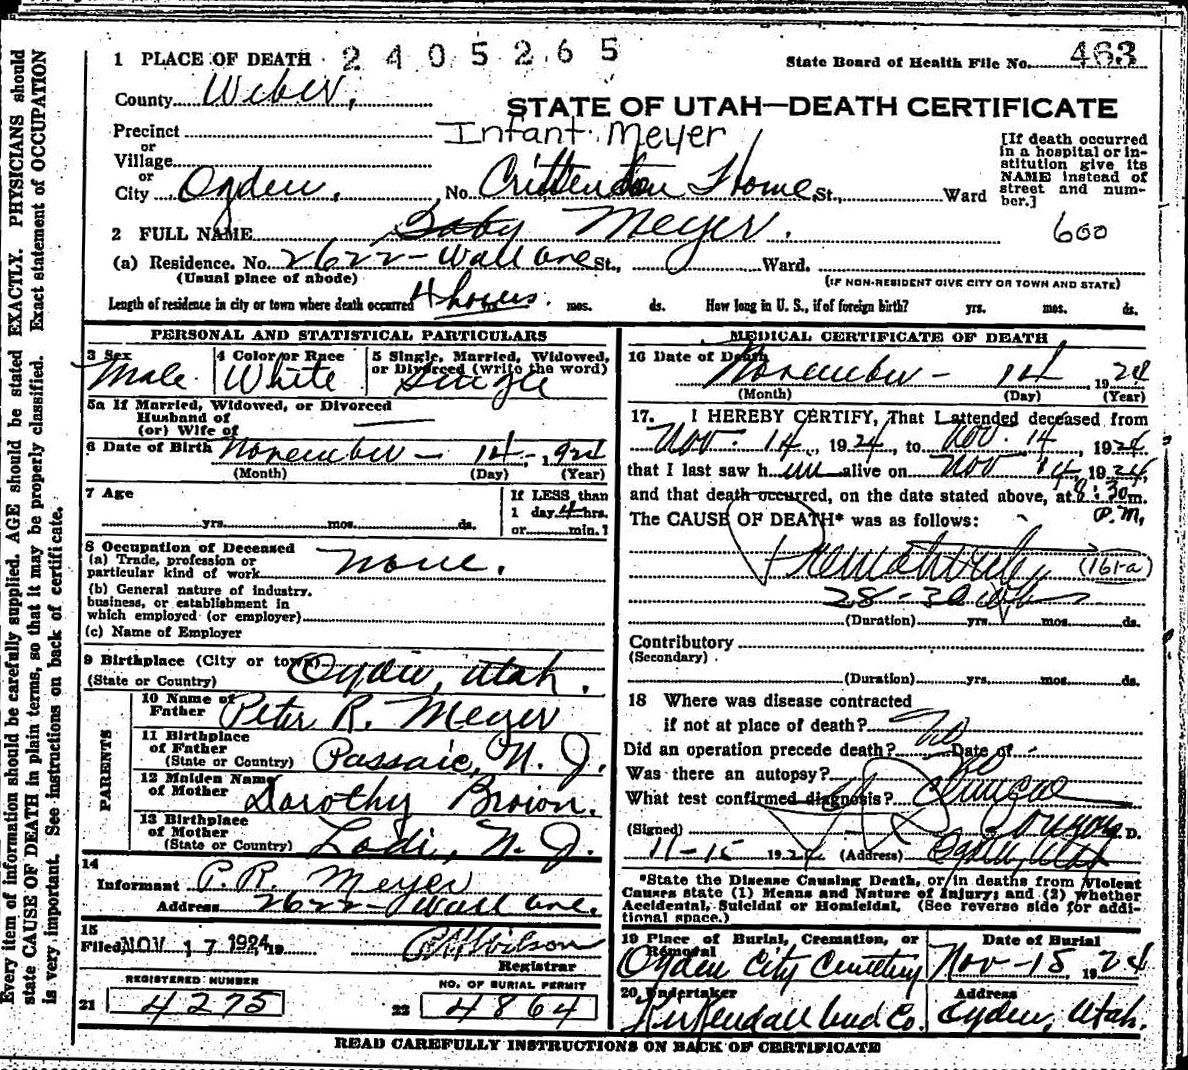 1 PLACE OF DEATH 2405265
State Board of Health File No. 463
County Weber,
STATE OF UTAH—DEATH CERTIFICATE
Infant Meyer
Precinct
or
Village
or
City Ogden, No. Crittenton Home St., Ward
[If death occurred
in a hospital or in-
stitution give its
NAME instead of
street and num-
ber.]
600
2 FULL NAME Baby Meyer.
(a) Residence. No. 2622-Wall ave St., Ward.
(Usual place of abode)
(IF NON-RESIDENT GIVE CITY OR TOWN AND STATE)
Length of residence in city or town where death occurred 4 hours. mos. ds. How long in U. S., if of foreign birth? yrs. mos. ds.
PERSONAL AND STATISTICAL PARTICULARS
3 Sex 4 Color or Race 5 Single, Married, Widowed,
or Divorced (write the word)
Male. White Single
5a If Married, Widowed, or Divorced
Husband of
(or) Wife of
6 Date of Birth November - 14 - 1924
(Month) (Day) (Year)
7 Age
yrs. mos. ds.
If LESS than
1 day 4 hrs.
or min.1
8 Occupation of Deceased
(a) Trade, profession or
particular kind of work none.
(b) General nature of industry.
business, or establishment in
which employed (or employer)
(c) Name of Employer
9 Birthplace (City or town)
(State or Country) Ogden, Utah.
PARENTS
10 Name of
Father Peter R. Meyer
11 Birthplace
of Father
(State or Country) Passaic, N. J.
12 Maiden Name
of Mother Dorothy Brown.
13 Birthplace
of Mother
(State or Country) Lodi, N. J.
14
Informant P. R. Meyer
Address 2622-Wall ave.
15
Filed NOV 17 1924, 19
Wilson
Registrar
REGISTERED NUMBER
21 4275
NO. OF BURIAL PERMIT
22 4864
MEDICAL CERTIFICATE OF DEATH
16 Date of Death
November - 14, 1924
(Month) (Day) (Year)
17. I HEREBY CERTIFY, That I attended deceased from
Nov. 14, 1924, to Nov. 14, 1924
that I last saw him alive on Nov 14, 1924,
and that death occurred, on the date stated above, at :30 m.
P.M.
The CAUSE OF DEATH* was as follows:
Prematurity (161-a)
28-30 wks
(Duration) yrs. mos. ds.
Contributory
(Secondary)
(Duration) yrs. mos. ds.
18 Where was disease contracted
if not at place of death?
Did an operation precede death? No Date of -
Was there an autopsy? No
What test confirmed diagnosis? Clinical
(Signed) M. D.
11-15 1924 (Address) Ogden, Utah
*State the Disease Causing Death, or in deaths from Violent
Causes state (1) Means and Nature of Injury; and (2) whether
Accidental, Suicidal or Homicidal. (See reverse side for addi-
tional space.)
19 Place of Burial, Cremation, or
Removal
Ogden City Cemetery
Date of Burial
Nov-15, 1924
20 Undertaker
Kirkendall Und Co.
Address
Ogden, Utah.
READ CAREFULLY INSTRUCTIONS ON BACK OF CERTIFICATE
Every item of information should be carefully supplied. AGE should be stated EXACTLY. PHYSICIANS should
state CAUSE OF DEATH in plain terms, so that it may be properly classified. Exact statement of OCCUPATION
is very important. See instructions on back of certificate.